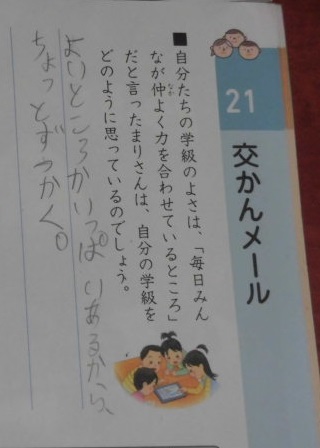 21
交かんメール
■自分たちの学級のよさは、「毎日みん
なが仲よく力を合わせているところ」
なか
だと言ったまりさんは、自分の学級を
どのように思っているのでしょう。
よいところがいっぱいあるから、
ちょっとずつかく。